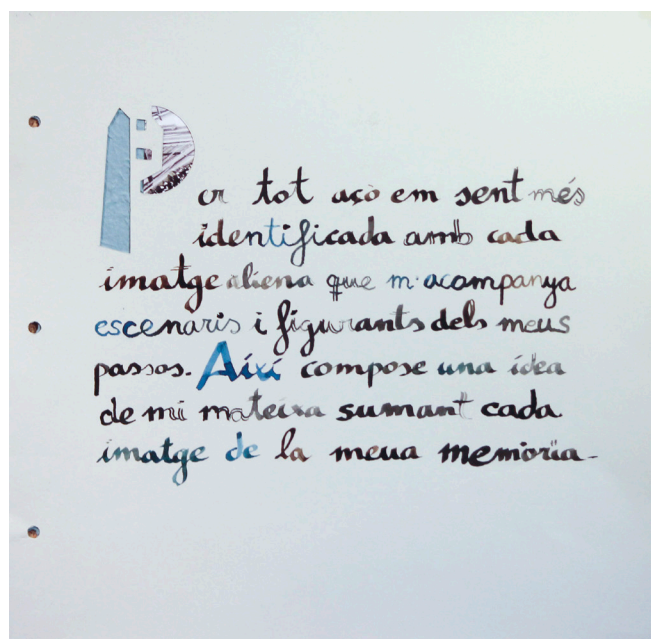 Per tot açò em sent més
identificada amb cada
imatge aliena que m·acompanya
escenaris i figurants dels meus
passos. Així compose una idea
de mi mateixa sumant cada
imatge de la meua memòria.